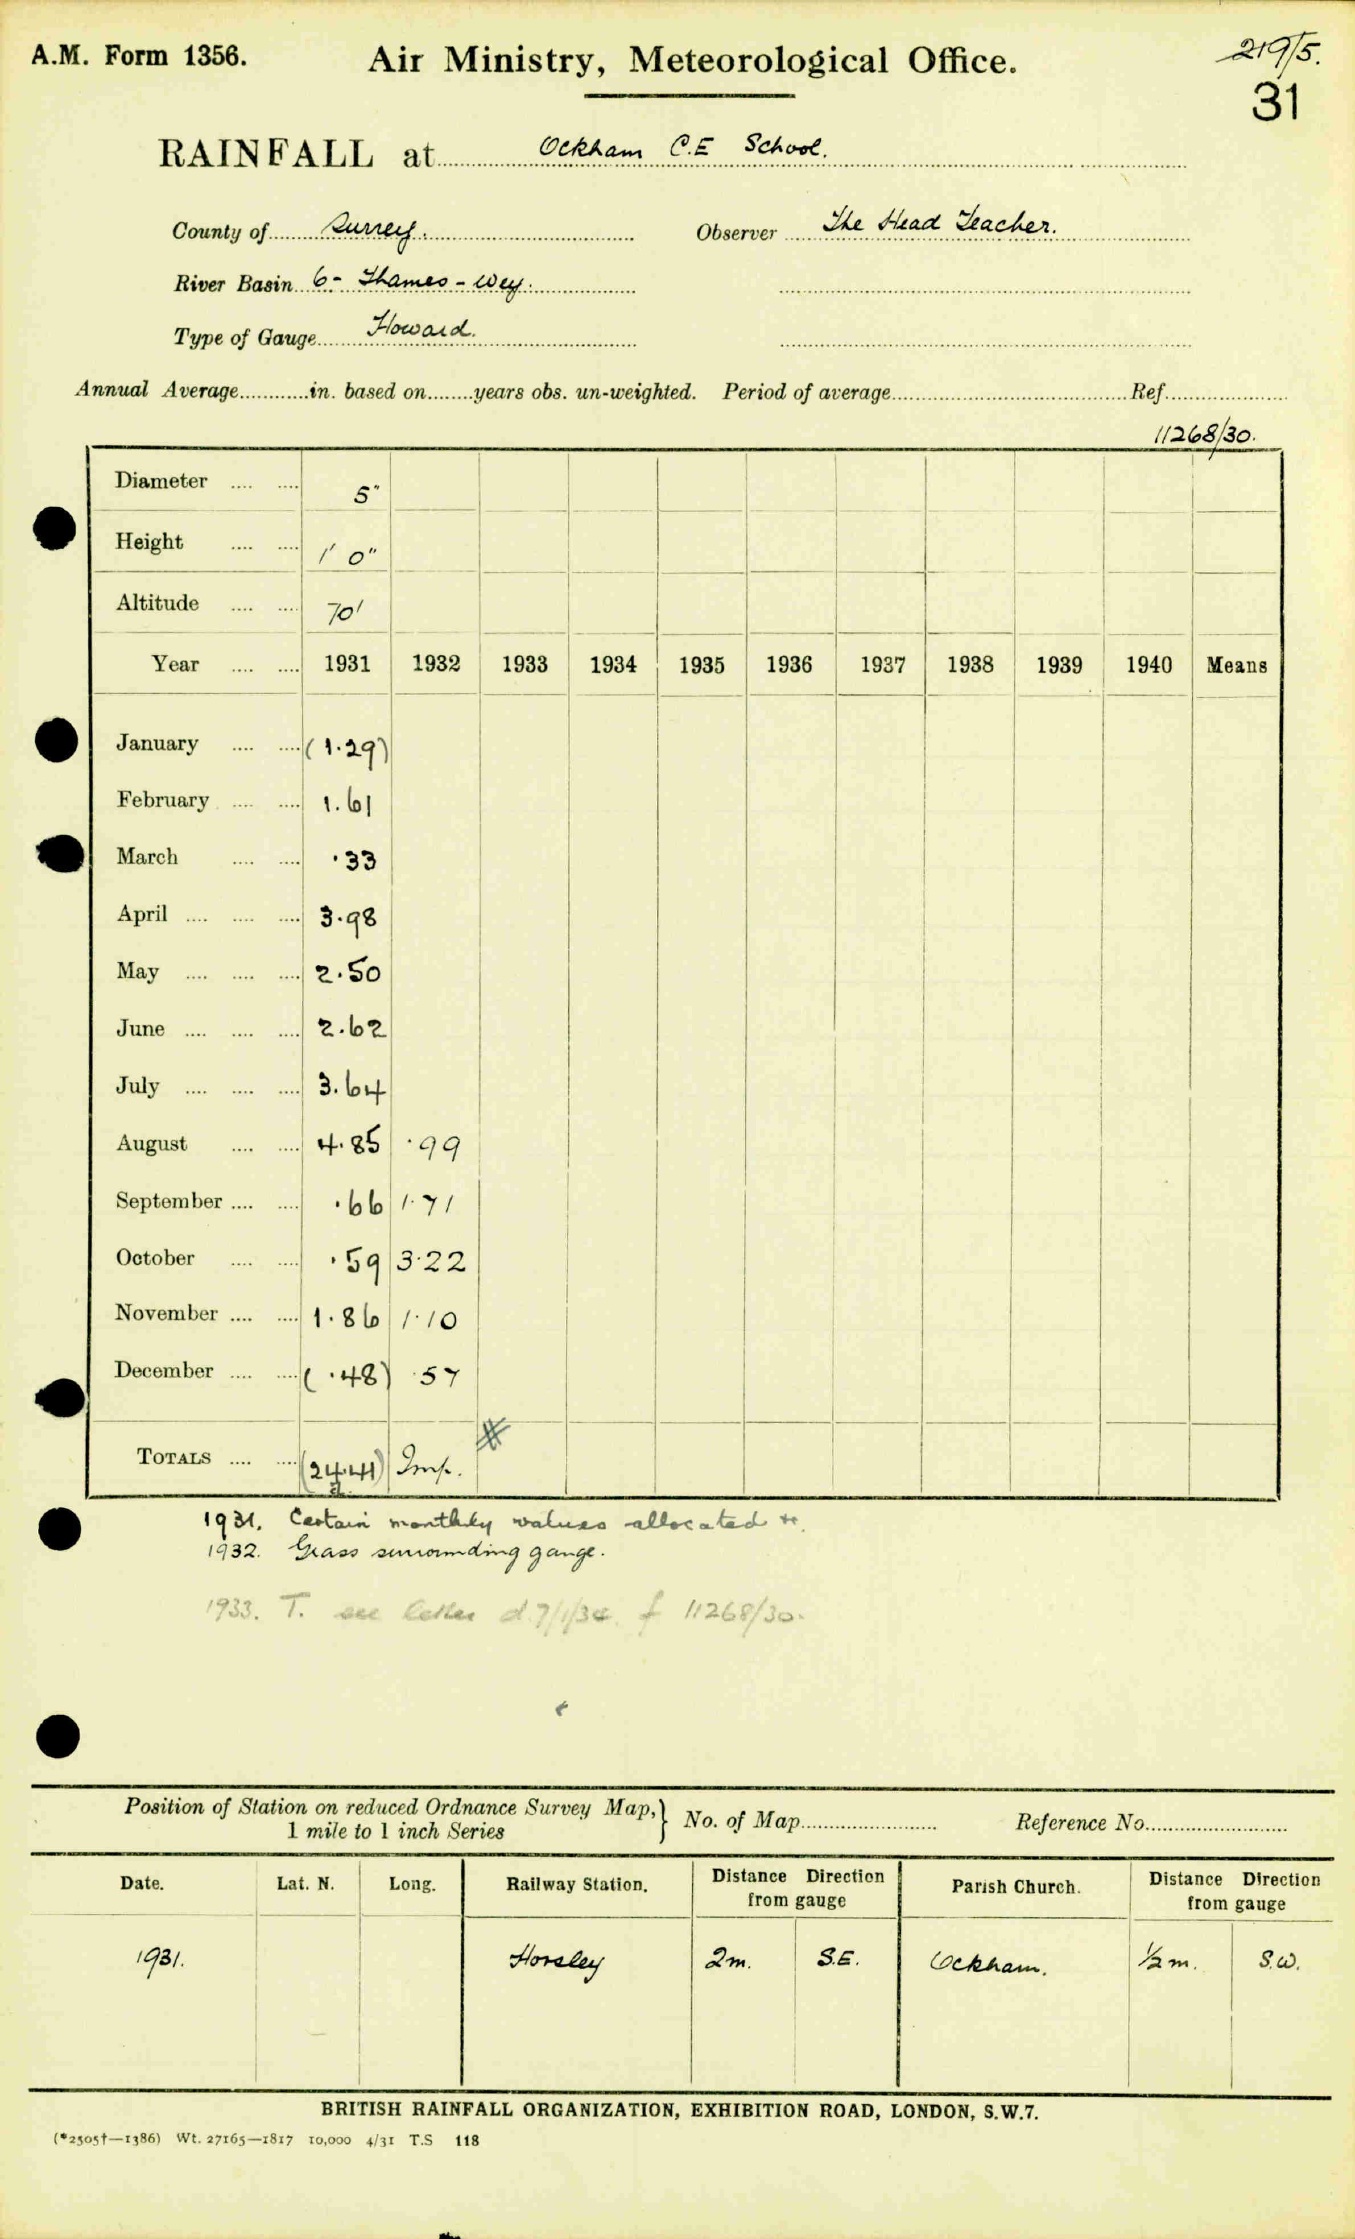 A.M. Form 1356. Air Ministry, Meteorological Office. 219/5.
31
RAINFALL at Ockham C.E School.
County of Surrey. Observer The Head Teacher.
River Basin 6- Thames - Wey.
Type of Gauge Howard.
Annual Average in. based on years obs. un-weighted. Period of average Ref.
11268/30.
Diameter 5"
Height 1' 0"
Altitude 70'
Year 1931 1932 1933 1934 1935 1936 1937 1938 1939 1940 Means
January (1.29)
February 1.61
March .33
April 3.98
May 2.50
June 2.62
July 3.64
August 4.85 .99
September .66 1.71
October .59 3.22
November 1.86 1.10
December (.48) .57
TOTALS (24.41) Imp.
1931. Certain monthly values allocated
1932. Grass surrounding gauge.
1933. T. see letter d. 7/1/34. f 11268/30.
Position of Station on reduced Ordnance Survey Map,} No. of Map Reference No.
1 mile to 1 inch Series
Date. Lat. N. Long. Railway Station. Distance Direction from gauge Parish Church. Distance Direction from gauge
1931. Horsley 2m. S.E. Ockham. ½ m. S.W.
BRITISH RAINFALL ORGANIZATION, EXHIBITION ROAD, LONDON, S.W.7.
(*2505†—1386) Wt. 27165—1817 10,000 4/31 T.S 118